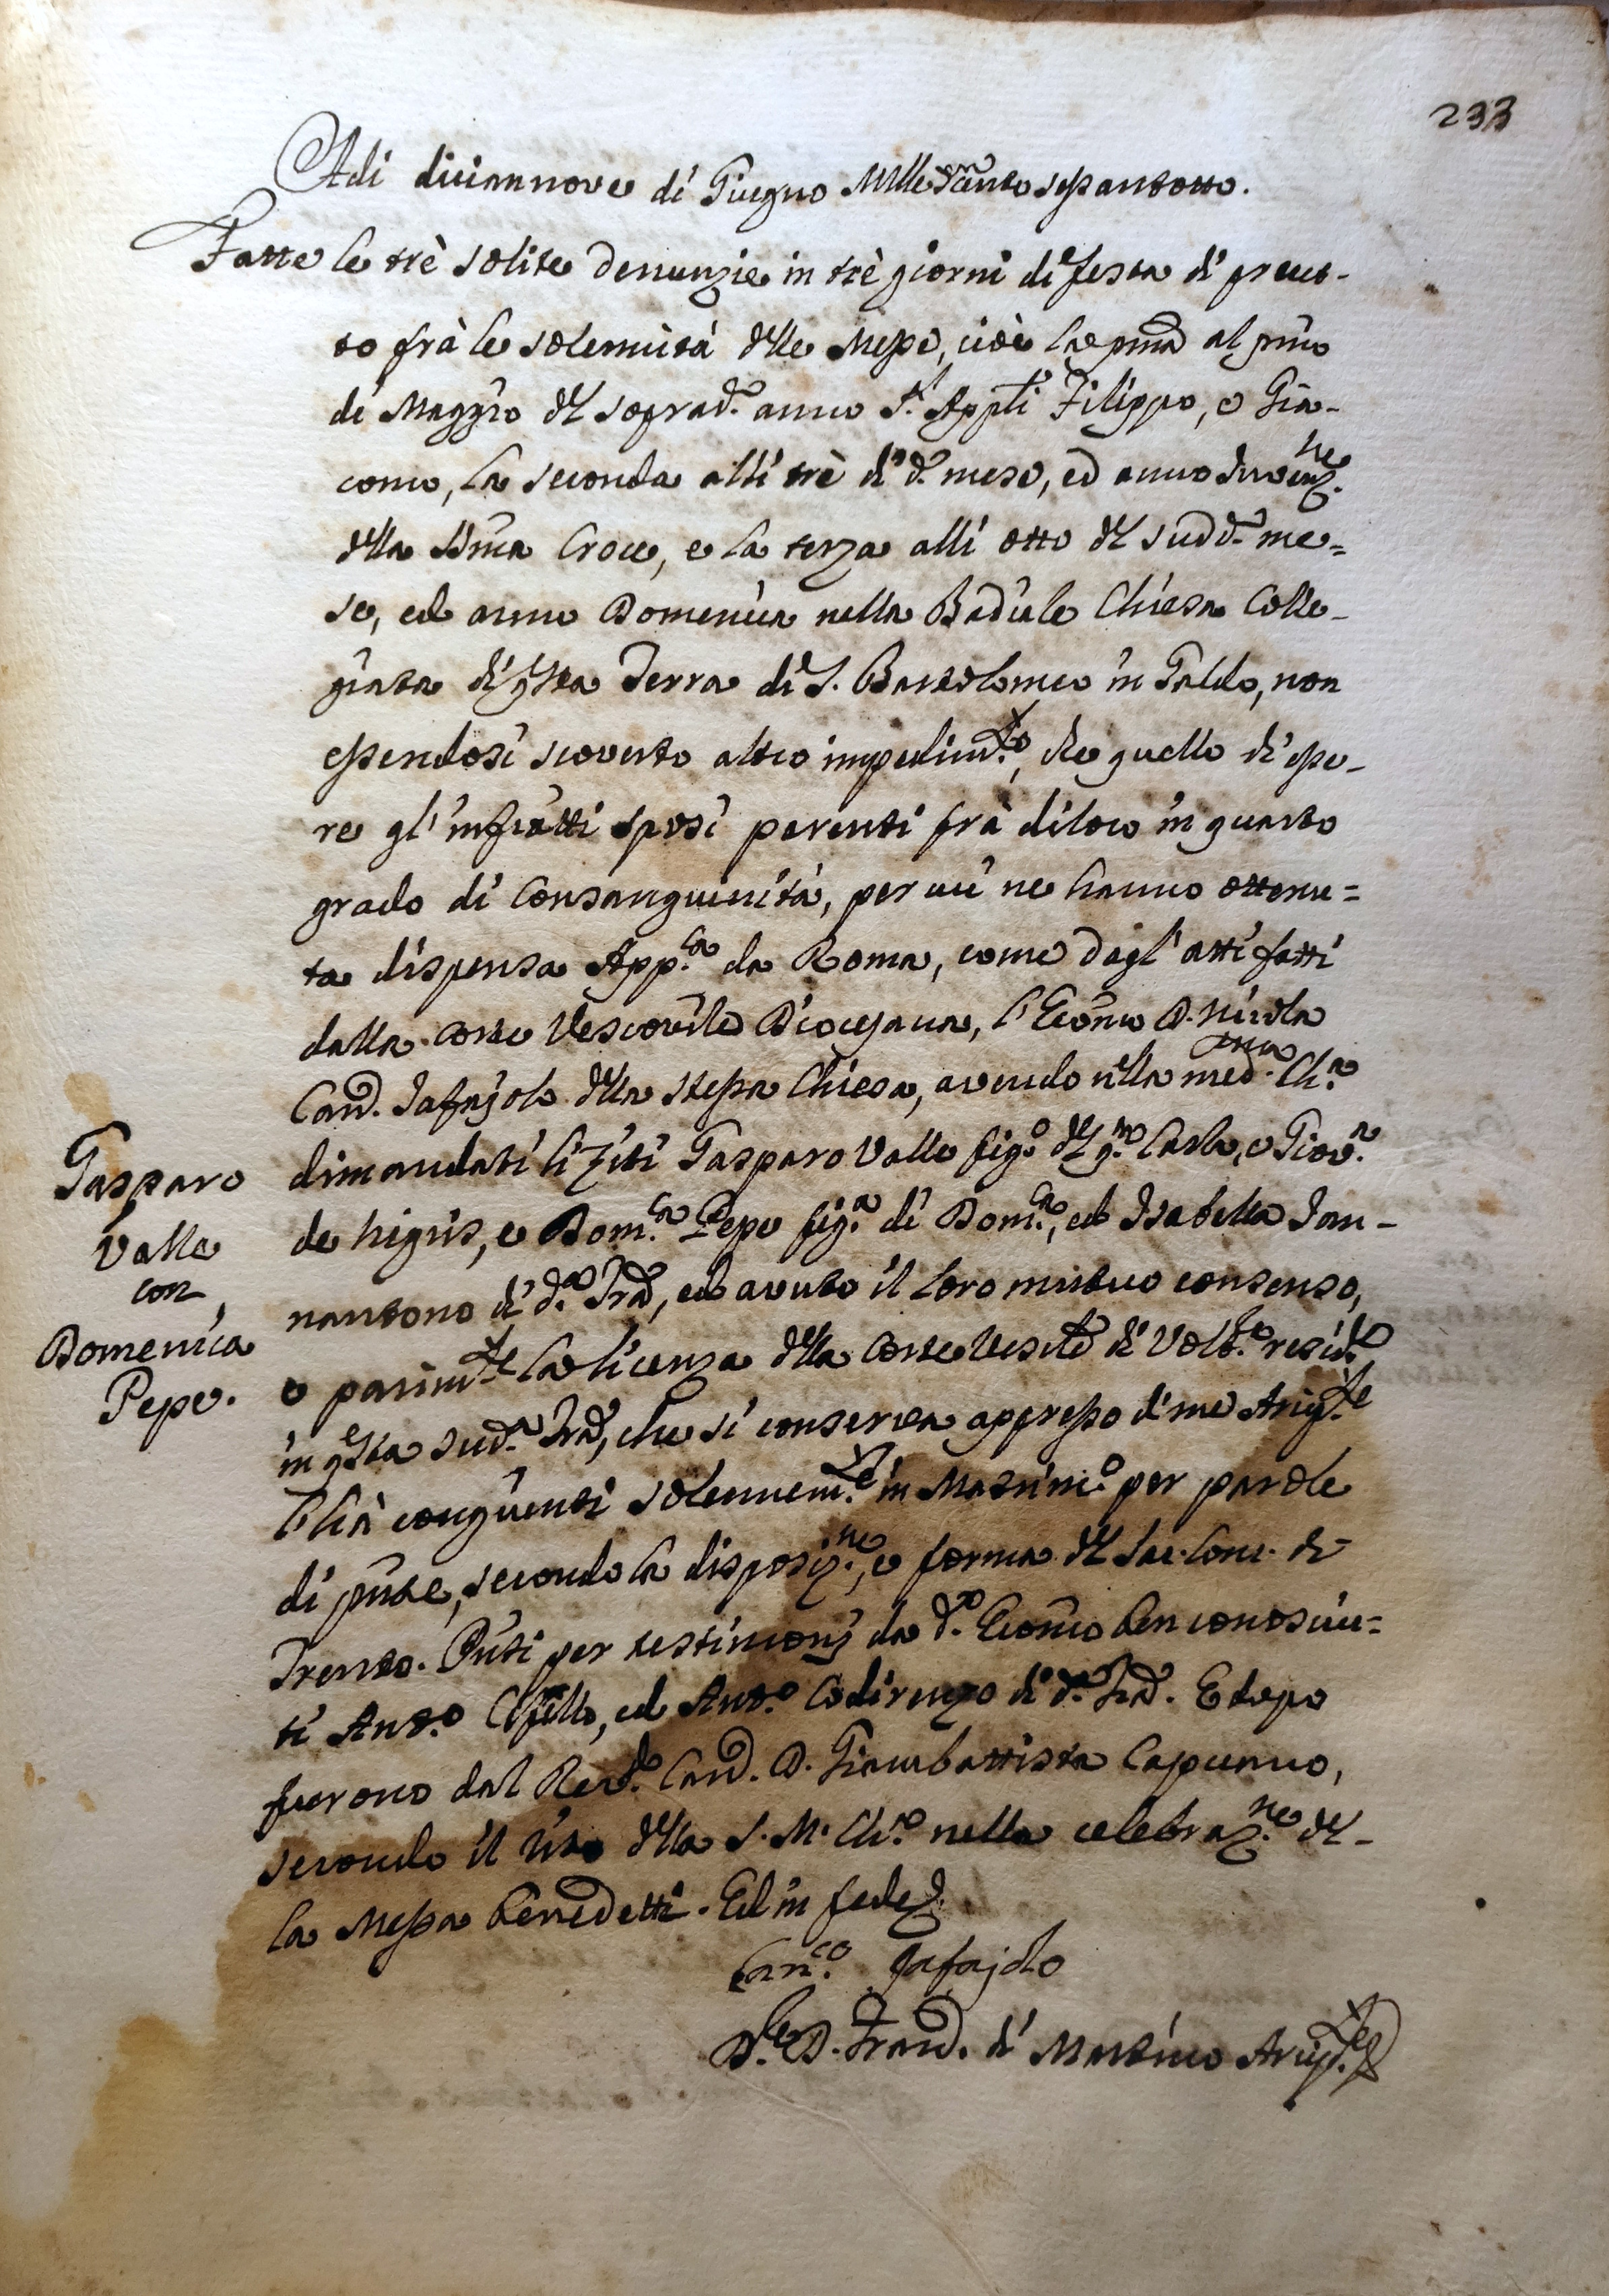 233
Adi diciannove di Giugno Mille settecento sessantotto.
Fatte le trè solite denunzie in trè giorni di festa di precet-
to frà le solennità d'lle Messe, cioè la p̃ma al p̃mo
di Maggio d'l soprad.º anno S.ti App̃li Filippo, e Gia-
como, la seconda alli trè di d.º mese, ed anno Invenz.ne
d'lla SS̃ma Croce, e la terza alli otto d'l sudd.º me=
se, ed anno Domenica nella Badiale Chiesa Colle-
giata di q̃sta Terra di S. Bartolomeo in Galdo, non
essendosi scoverto altro impedim.to, che quello di esse-
re gl'infrãtti sposi parenti frà diloro in quarto
grado di consanguinità, per cui ne hanno ottenu=
ta dispensa App.ca da Roma, come dagl'atti fatti
dalla Corte Vescovile Diocesana, l'Ecõnomo D. Nicola
Can.co Jafajolo d'lla stessa Chiesa, avendo n'lla med.ma Ch.a
dimandati li Ziti Gasparo Valle fig.o d'l q.m Carlo, e Giov.a
de Nigris, e Dom.ca Pepe fig.a di Dom.co, ed Isabella Ian-
nantono di d.a Trã, ed avuto il loro mutuo consenso,
e parim.te la licenza d'lla Corte Vesc̃le di Volt.a resid.te
in q̃sta sud.a Trã, che si conserva appresso di me Arcip.te
li hà congiunti solennem.te in Matrim.o per parole
di p̃nte, secondo la disposiz.ne, e forma d'l Sac. Conc. di
Trento. P̃nti per testimonj da d.o Ecõnomo ben conosciu=
ti Ant.o ed Ant.o Codirenzo di d.a Trã. E dopo
furono dal Rev.do Can.co D. Giambattista Capuano,
secondo il rito d'lla S. M. Ch.a nella celebraz.ne del-
la Messa benedetti. Ed in fede
Can.co Jafajolo
D.r D. Fran.co di Martino Arcip.te
Gasparo
Valle
con
Domenica
Pepe.